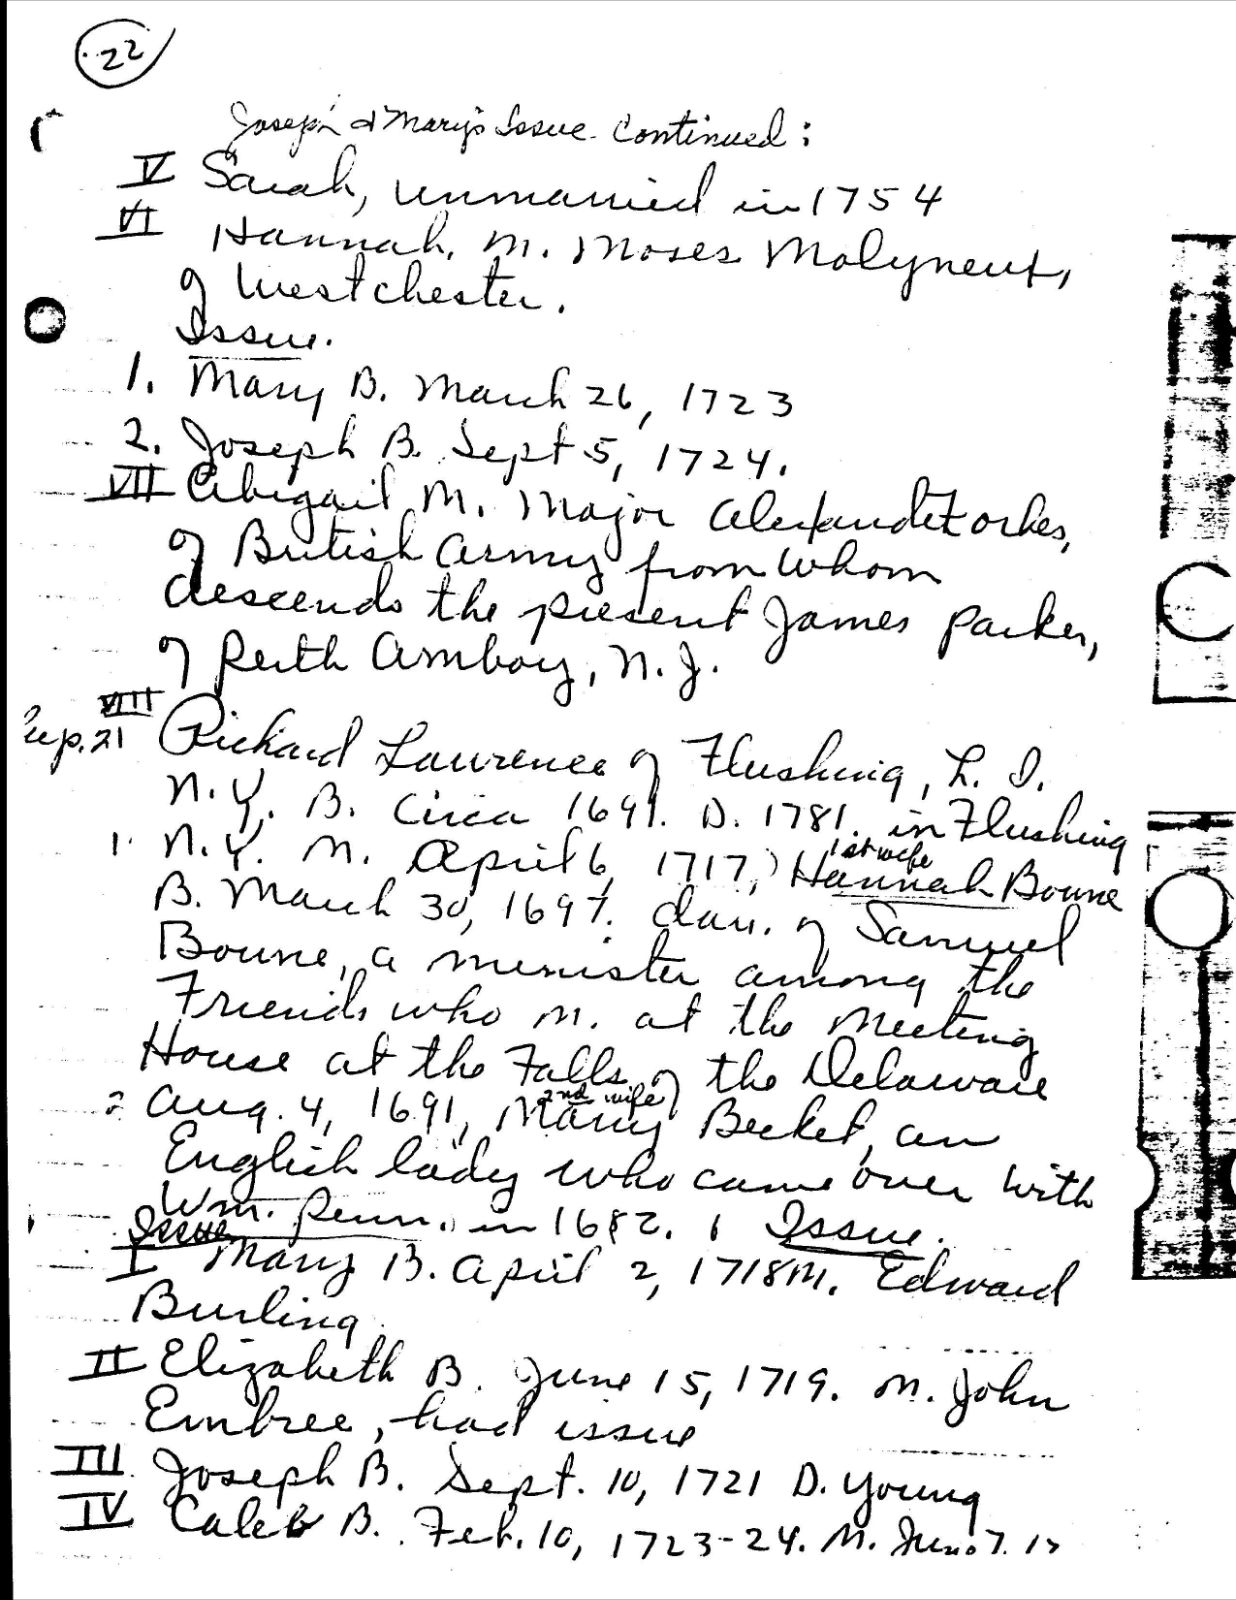 22
Joseph & Mary's Issue Continued:
V Sarah, unmarried in 1754
VI Hannah. M. Moses Molyneux,
of Westchester.
Issue.
1. Mary B. March 26, 1723
2. Joseph B. Sept 5, 1724.
VII Abigail M. Major Alexander Forbes,
of British Army from whom
descends the present James Parker,
of Perth Amboy, N.J.
VIII
p. 21 Richard Lawrence of Flushing, L. I.
N.Y. B. Circa 1691. D. 1781. in Flushing
1. N.Y. M. April 6, 1717, 1st wife Hannah Bowne
B. March 30, 1697. dau. of Samuel
Bowne, a minister among the
Friends who m. at the Meeting
House at the Falls of the Delaware
2 Aug. 4, 1691, 2nd wife Mary Becket, an
English lady who came over with
Wm. Penn. in 1682. 1 Issue.
Issue
I Mary B. April 2, 1718 M. Edward
Burling
II Elizabeth B. June 15, 1719. M. John
Embree, had issue
III Joseph B. Sept. 10, 1721 D. young
IV Caleb B. Feb. 10, 1723-24. M. 7. 17